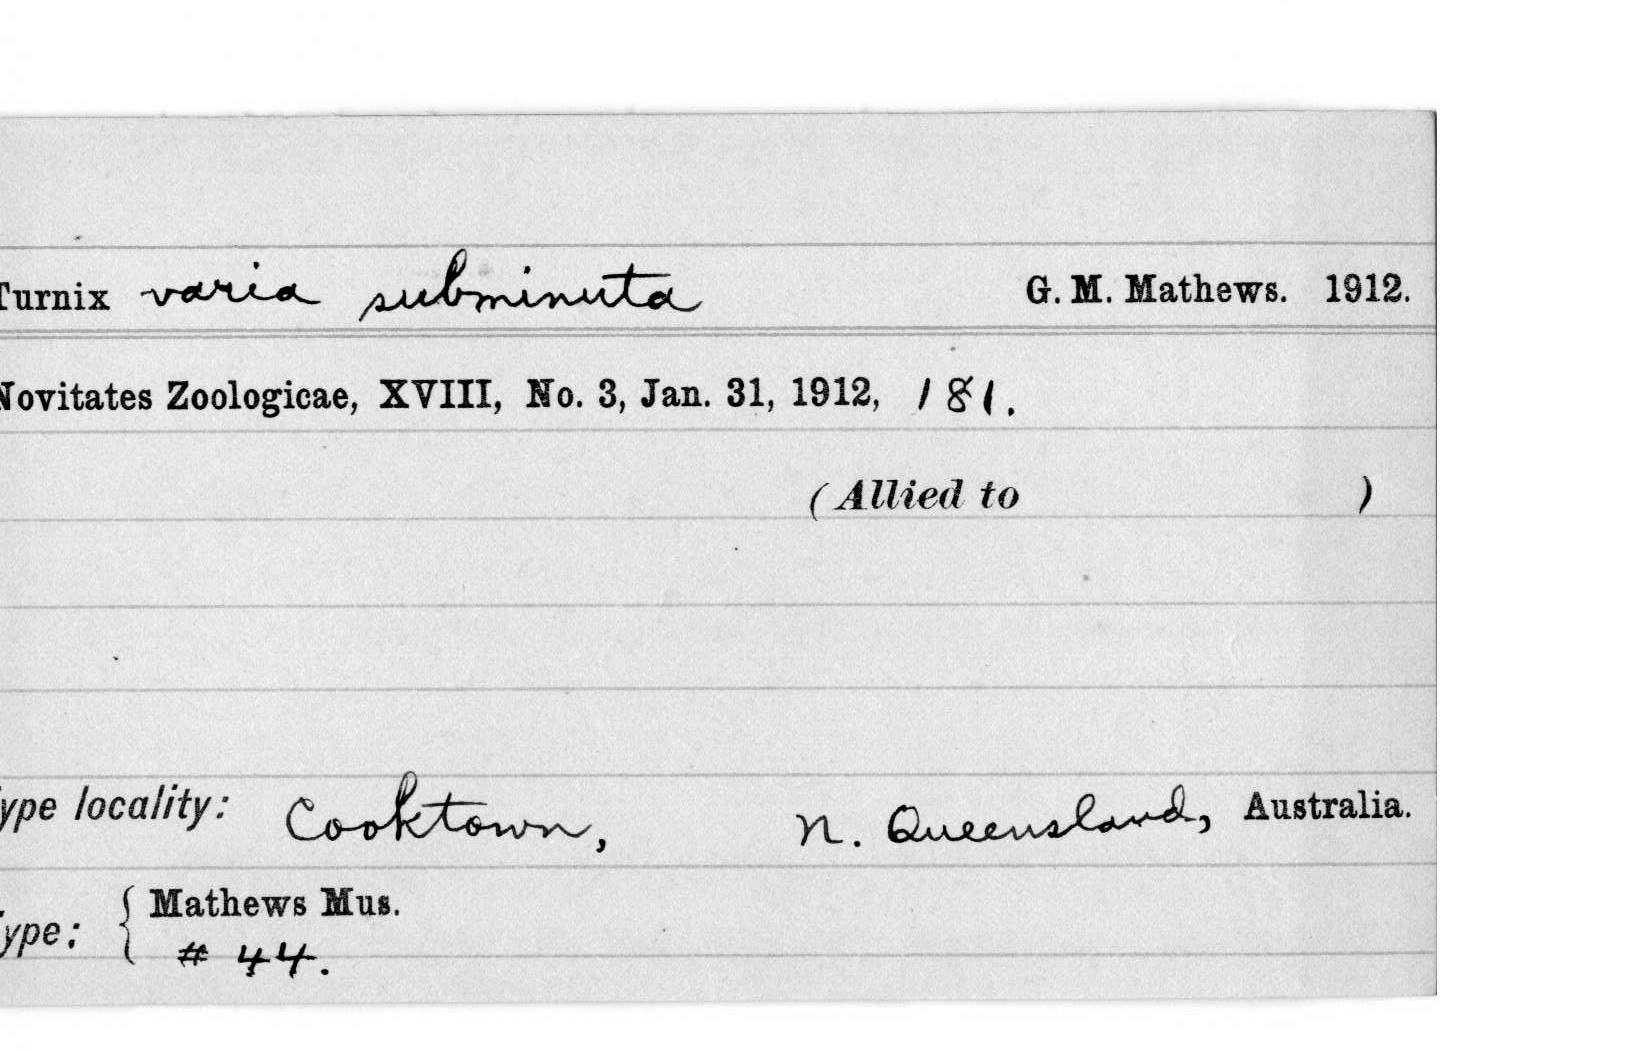 Turnix varia subminuta G. M. Mathews. 1912.
Novitates Zoologicae, XVIII, No. 3, Jan. 31, 1912, 181.
(Allied to )
ype locality: Cooktown, N. Queensland, Australia.
ype: { Mathews Mus.
# 44.